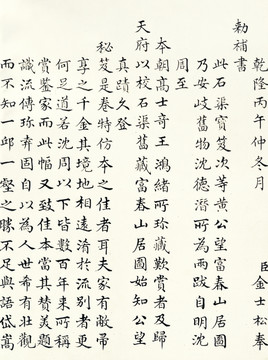 臣金士松奉
勅補書
乾隆丙午仲冬月
此石渠寶笈次等黃公望富春山居圖
乃安岐舊物沈德潛所為兩跋自明沈
周至
本朝高士奇王鴻緒所珍藏歎賞者及歸
天府以校石渠舊藏富春山居圖始知公望
真蹟久登
秘笈是卷特仿本之佳者耳夫家有敝帚
享之千金其境地相遠淆於流別者更
何足道若沈周以下皆數百年來所稱
賞鑒家而此幅又致佳本當其賛美題
識流傳珍弆固自以為人世希有壯觀
而不知一邱一壑之勝不足與語岱嵩